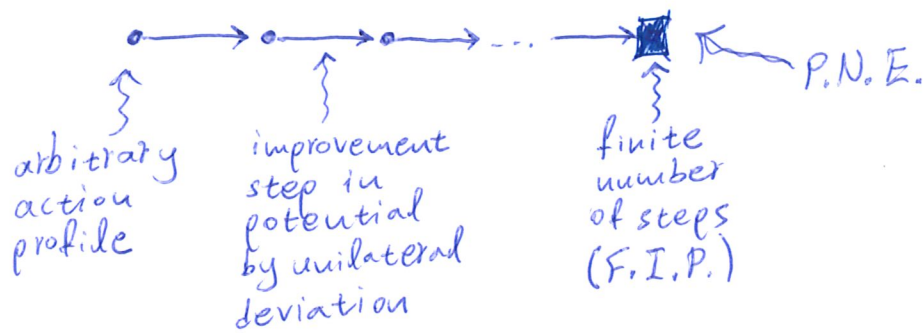 ...
P.N.E.
arbitrary
action
profile
improvement
step in
potential
by unilateral
deviation
finite
number
of steps
(F.I.P.)